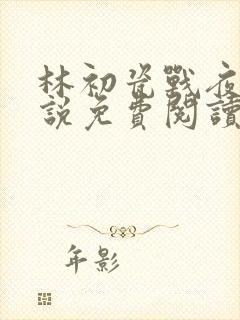 林初瓷戰夜
說免費閱讀
年影